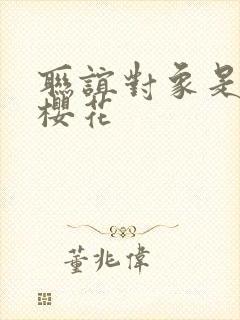 聯誼對象是
櫻花
董兆偉